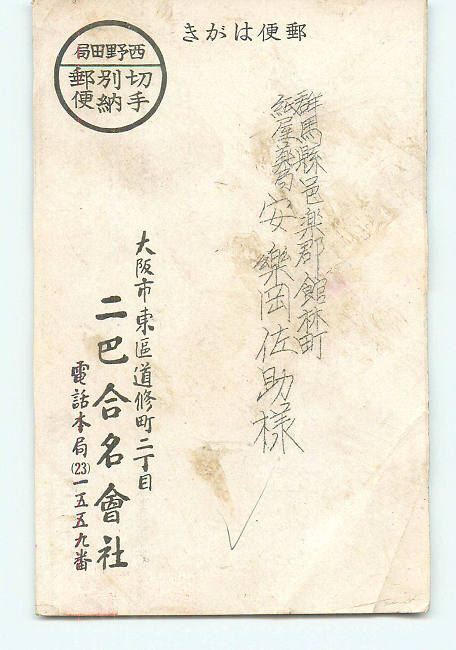 郵便はがき
西野田局
切手別納郵便
群馬縣邑楽郡館林町
紙屋薬局
安樂岡佐助様
大阪市東區道修町二丁目
二巴合名會社
電話本局(23)一五五九番